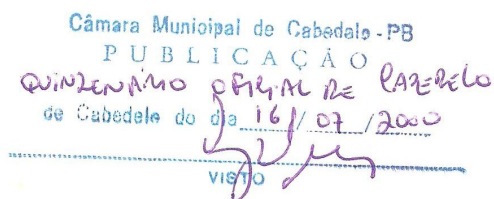 Câmara Municipal de Cabedelo - PB
PUBLICAÇÃO
QUINZENÁRIO OFICIAL DE CABEDELO
de Cabedelo do dia 16 / 07 / 2000
VISTO